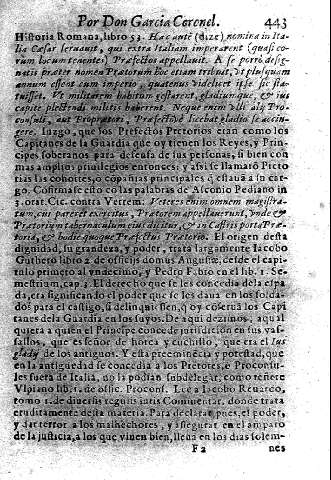 Por Don Garcia Coronel. 443
Historia Romana, libro 53. Hac ante (dize) nomina in Ita
lia Cæsar seruauit, qui extra Italiam imperarent (quasi eo-
rum locum tenentes) Præfectos appellauit. A se porrò desig-
natis præter nomen Prætorum hoc etiam tribuit, vt plusquam
annum essent cum imperio, quatenus videlicet ipse sic sta-
tuisset. Vt militarem habitum gestarent, gladiumque, & ius
capite plectendi militis haberent. Neque enim vlli alij Pro-
consuli, aut Proprætori, Præfectove licebat gladio se accin-
gere. luzgo, que los Prefectos Pretorios eran como los
Capitanes de la Guardia que oy tienen los Reyes, y Prin-
cipes soberanos para defensa de sus personas, si bien con
mas amplios priuilegios entonces, y assi se llamaró Preto
rias las cohortes, o cópañias principales q̃ estauã a su car-
go. Confirmase esto có las palabras de Asconio Pediano in
3. orat. Cic. contra Verrem. Veteres enim omnem magistra-
tum, cui pareret exercitus, Prætorem appellauerunt, vnde &
Prætorium tabernaculum eius dicitur, & in Castris porta Præ-
toria, & hodie quoque Præfectus Prætorio. El origen desta
dignidad, su grandeza, y poder, trata largamente Iacobo
Guthero libro 2. de officijs domus Augustæ, desde el capi-
tulo primero al vndecimo, y Pedro Fabro en el lib. 1. Se-
mestrium, cap. 2. El derecho que se les concedia de la espa
da, era significando el poder que se les daua en los solda-
dos para el castigo, si delinquiessen,
pitanes de la Guardia en los suyos. De aqui dezimos, aqual
quiera a quien el Principe concede jurisdicion en sus vas-
sallos, que es señor de horca y cuchillo, que era el Ius
gladij de los antiguos. Y esta preeminencia y potestad, que
en la antiguedad se concedia a los Pretores, è Proconsu-
les fuera de Italia, no la podian subdelegar, como refiere
Vlpiano lib. 1. de offic. Proconf. Lee a Iacobo
tomo 1. de diuersis regulis iuris Commentar. donde trata
eruditamente desta materia. Para declarar pues, el poder,
y dar terror a los malhechores, y assegurar en el amparo
de la justicia, a los que viuen bien, lleua en los dias solem-
F 2 nes